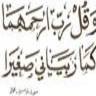 وَقُل رَّبِّ ارْحَمْهُمَا
كَمَا رَبَّيَانِي صَغِيرًا